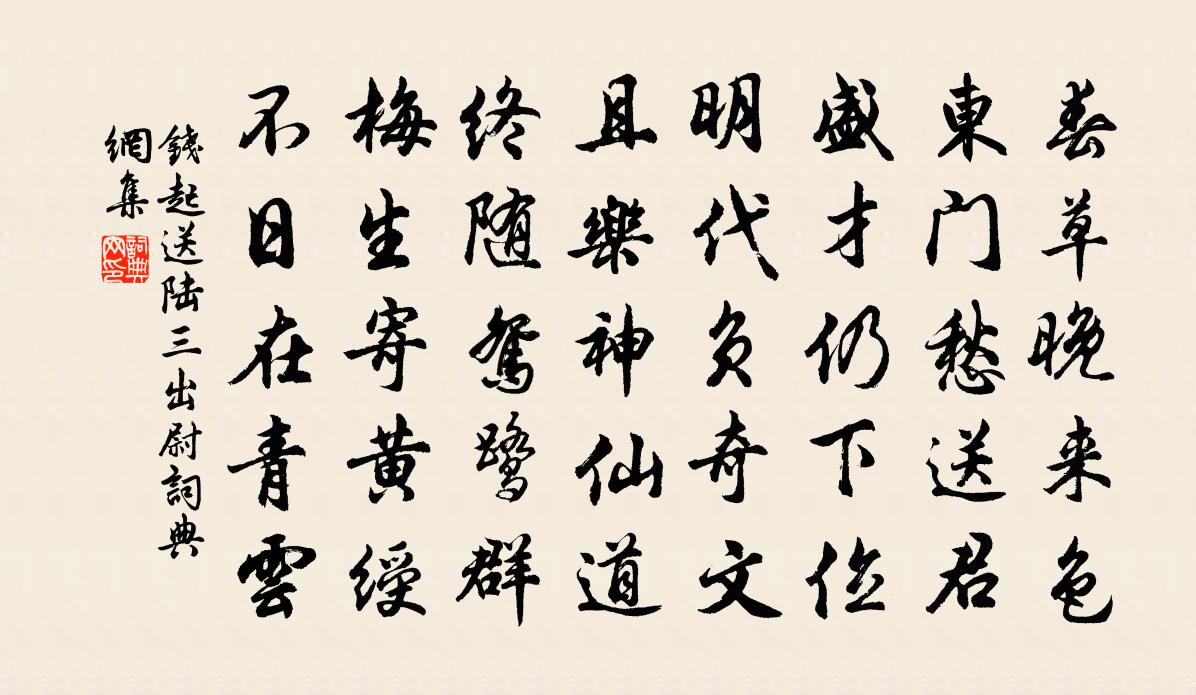 春草晚来色
東門愁送君
盛才仍下位
明代负奇文
且樂神仙道
终随鴛鹭群
梅生寄黄綬
不日在青雲
錢起送陆三出尉詞典
網集
詞典
网印